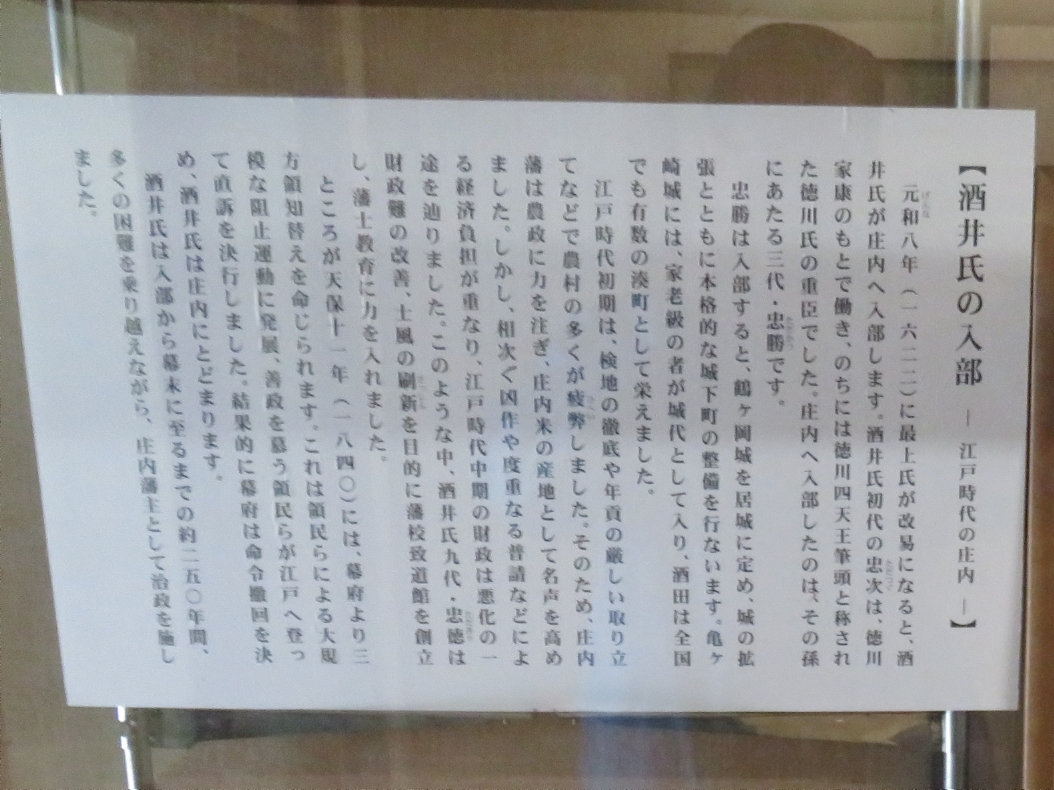 【酒井氏の入部 ― 江戸時代の庄内 ―】
元和八年(一六二二)に最上氏が改易になると、酒
井氏が庄内へ入部します。酒井氏初代の忠次は、徳川
家康のもとで働き、のちには徳川四天王筆頭と称され
た徳川氏の重臣でした。庄内へ入部したのは、その孫
にあたる三代・忠勝です。
忠勝は入部すると、鶴ヶ岡城を居城に定め、城の拡
張とともに本格的な城下町の整備を行ないます。亀ヶ
崎城には、家老級の者が城代として入り、酒田は全国
でも有数の湊町として栄えました。
江戸時代初期は、検地の徹底や年貢の厳しい取り立
てなどで農村の多くが疲弊しました。そのため、庄内
藩は農政に力を注ぎ、庄内米の産地として名声を高め
ました。しかし、相次ぐ凶作や度重なる普請などによ
る経済負担が重なり、江戸時代中期の財政は悪化の一
途を辿りました。このような中、酒井氏九代・忠徳は
財政難の改善、士風の刷新を目的に藩校致道館を創立
し、藩士教育に力を入れました。
ところが天保十一年(一八四〇)には、幕府より三
方領知替えを命じられます。これは領民らによる大規
模な阻止運動に発展、善政を慕う領民らが江戸へ登っ
て直訴を決行しました。結果的に幕府は命令撤回を決
め、酒井氏は庄内にとどまります。
酒井氏は入部から幕末に至るまでの約二五〇年間、
多くの困難を乗り越えながら、庄内藩主として治政を施し
ました。